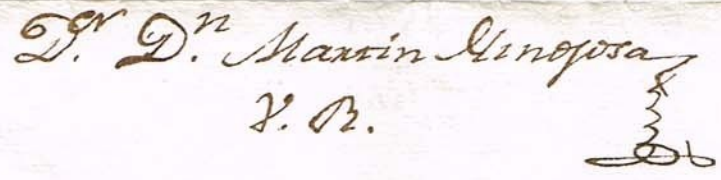 D.r D.n Martin Hinojosa
V. R.